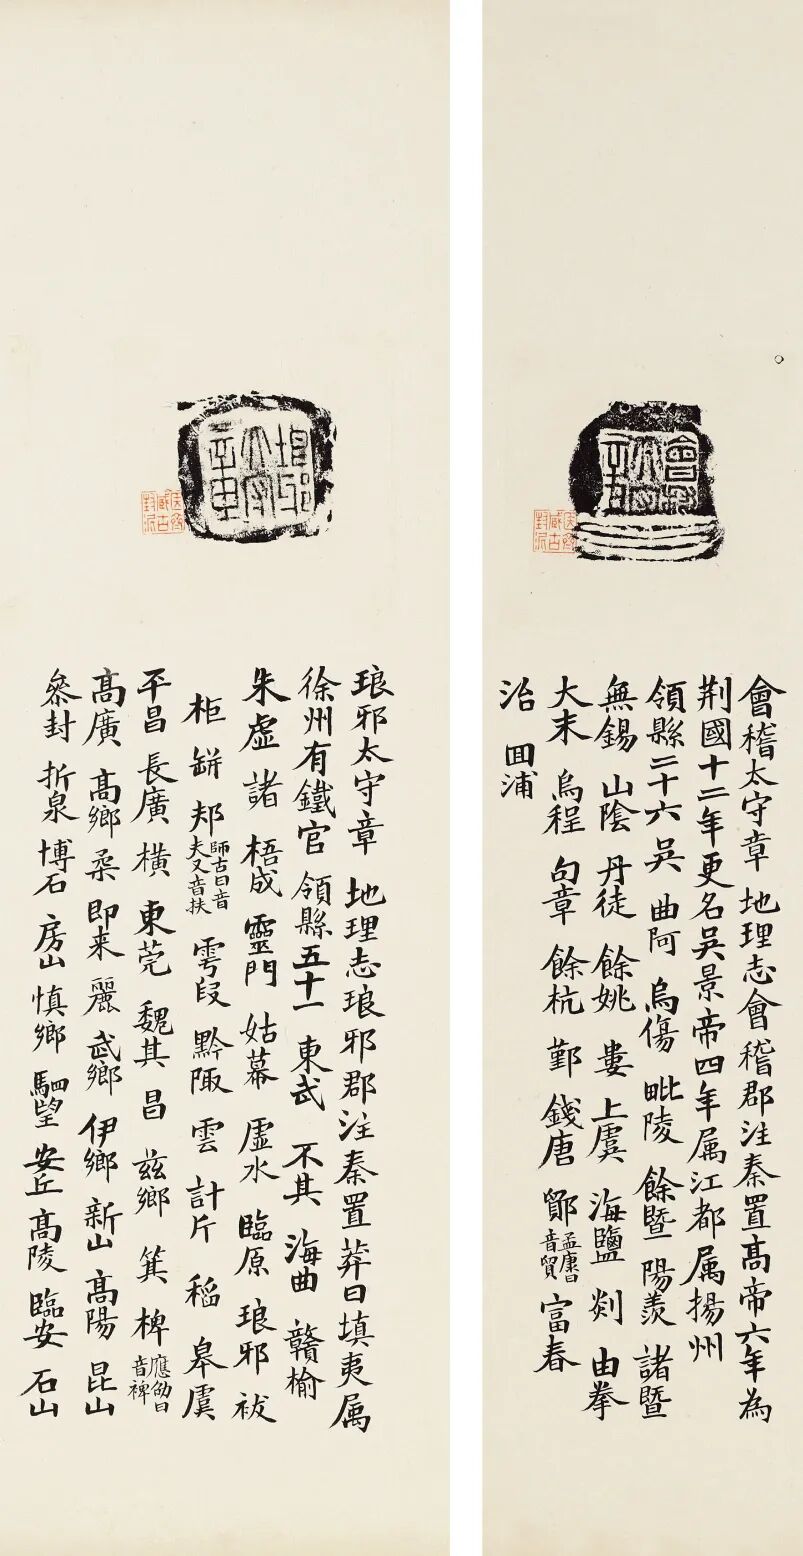 會稽太守章
藏古封泥
會稽太守章 地理志會稽郡注秦置高帝六年為
荆國十二年更名吳景帝四年属江都属揚州
領縣二十六 吳 曲阿 烏傷 毗陵 餘暨 陽羨 諸暨
無錫 山陰 丹徒 餘姚 婁 上虞 海鹽 剡 由拳
大末 烏程 句章 餘杭 鄞 錢唐 鄮 孟康曰音貿 富春
治 回浦
琅邪太守章
藏古封泥
琅邪太守章 地理志琅邪郡注秦置莽曰填夷属
徐州有鐵官 領縣五十一 東武 不其 海曲 贛榆
朱虛 諸 梧成 靈門 姑幕 虛水 臨原 琅邪 祓
柜 缾 邞 師古曰音夫又音扶 雩叚 黔陬 雲 計斤 稲 皋虞
平昌 長廣 橫 東莞 魏其 昌 兹鄉 箕 椑 應劭曰音裨
高廣 高鄉 柔 即来 麗 武鄉 伊鄉 新山 高陽 昆山
參封 折泉 博石 房山 慎鄉 駟望 安丘 高陵 臨安 石山